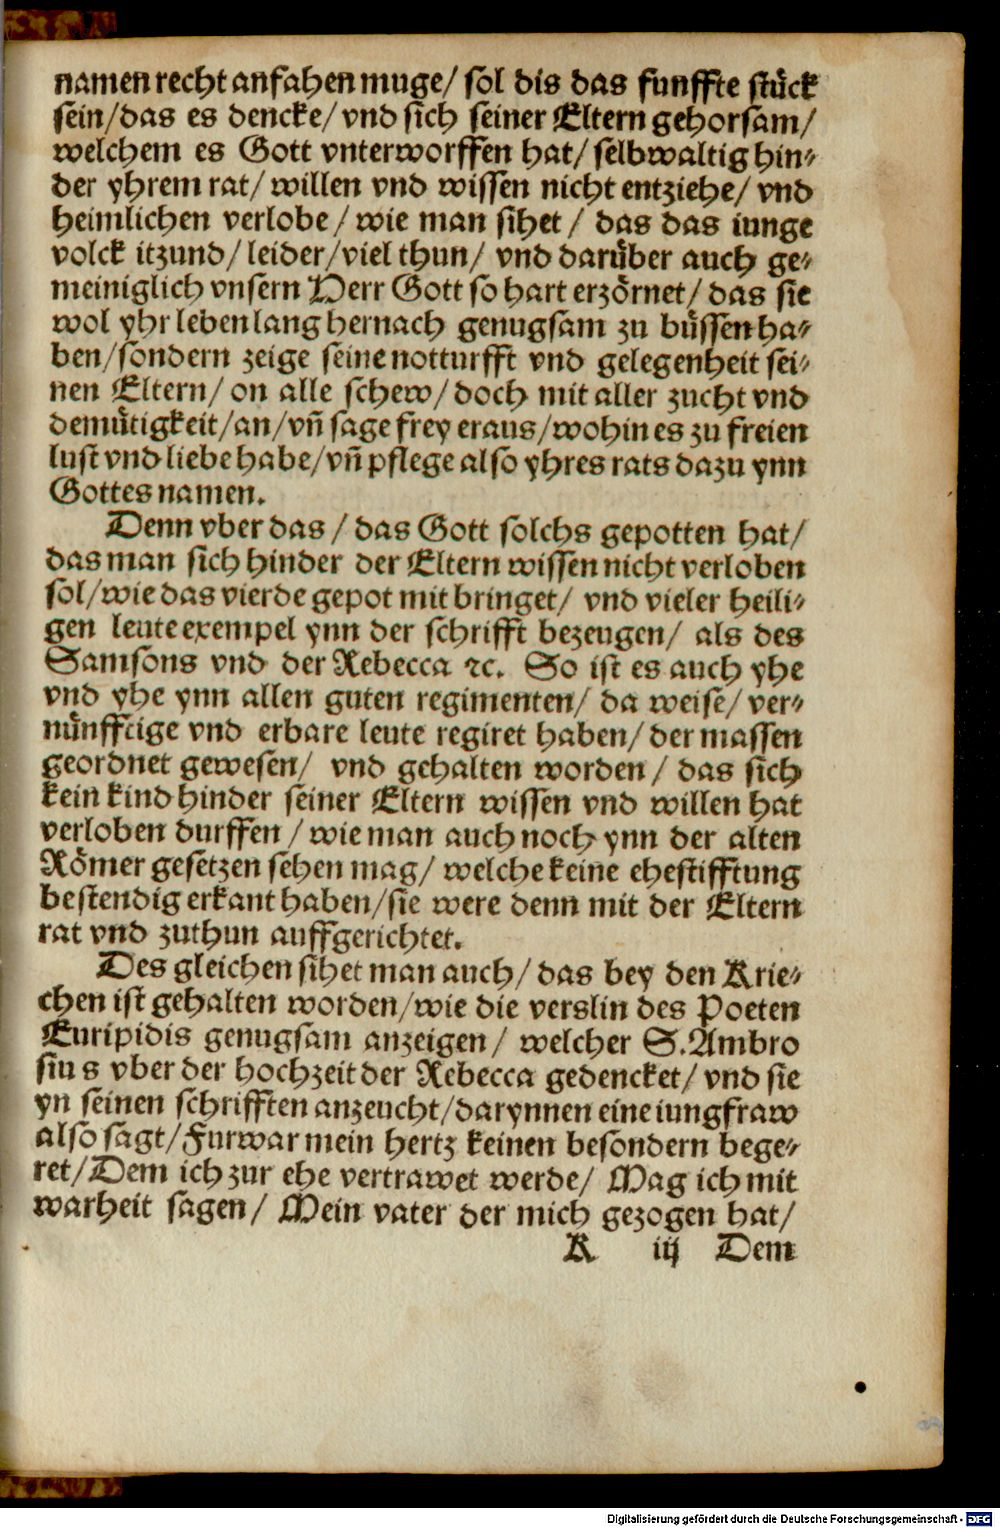 namen recht anfahen muge/ sol dis das funffte stuͤck
sein/das es dencke/ vnd sich seiner Eltern gehorsam/
welchem es Gott vnterworffen hat/ selbwaltig hin⸗
der yhrem rat/ willen vnd wissen nicht entziehe/ vnd
heimlichen verlobe/ wie man sihet/ das das iunge
volck itzund/ leider/ viel thun/ vnd daruͤber auch ge⸗
meiniglich vnsern Herr Gott so hart erzoͤrnet/ das sie
wol yhr leben lang hernach genugsam zu buͤssen ha⸗
ben/sondern zeige seine notturfft vnd gelegenheit sei⸗
nen Eltern/ on alle schew/ doch mit aller zucht vnd
demuͤtigkeit/an/vñ sage frey eraus/wohin es zu freien
lust vnd liebe habe/vñ pflege also yhres rats dazu ynn
Gottes namen.
Denn vber das/ das Gott solchs gepotten hat/
das man sich hinder der Eltern wissen nicht verloben
sol/wie das vierde gepot mit bringet/ vnd vieler heili⸗
gen leute exempel ynn der schrifft bezeugen/ als des
Samsons vnd der Rebecca ꝛc. So ist es auch yhe
vnd yhe ynn allen guten regimenten/ da weise/ ver⸗
nuͤnfftige vnd erbare leute regiret haben/ der massen
geordnet gewesen/ vnd gehalten worden/ das sich
kein kind hinder seiner Eltern wissen vnd willen hat
verloben durffen/ wie man auch noch ynn der alten
Roͤmer gesetzen sehen mag/ welche keine ehestifftung
bestendig erkant haben/sie were denn mit der Eltern
rat vnd zuthun auffgerichtet.
Des gleichen sihet man auch/ das bey den Krie⸗
chen ist gehalten worden/wie die verslin des Poeten
Euripidis genugsam anzeigen/ welcher S. Ambro
sius vber der hochzeit der Rebecca gedencket/ vnd sie
yn seinen schrifften anzeucht/darynnen eine iungfraw
also sagt/Furwar mein hertz keinen besondern bege⸗
ret/Dem ich zur ehe vertrawet werde/ Mag ich mit
warheit sagen/ Mein vater der mich gezogen hat/
K iij Dem
Digitalisierung gefördert durch die Deutsche Forschungsgemeinschaft - DFG